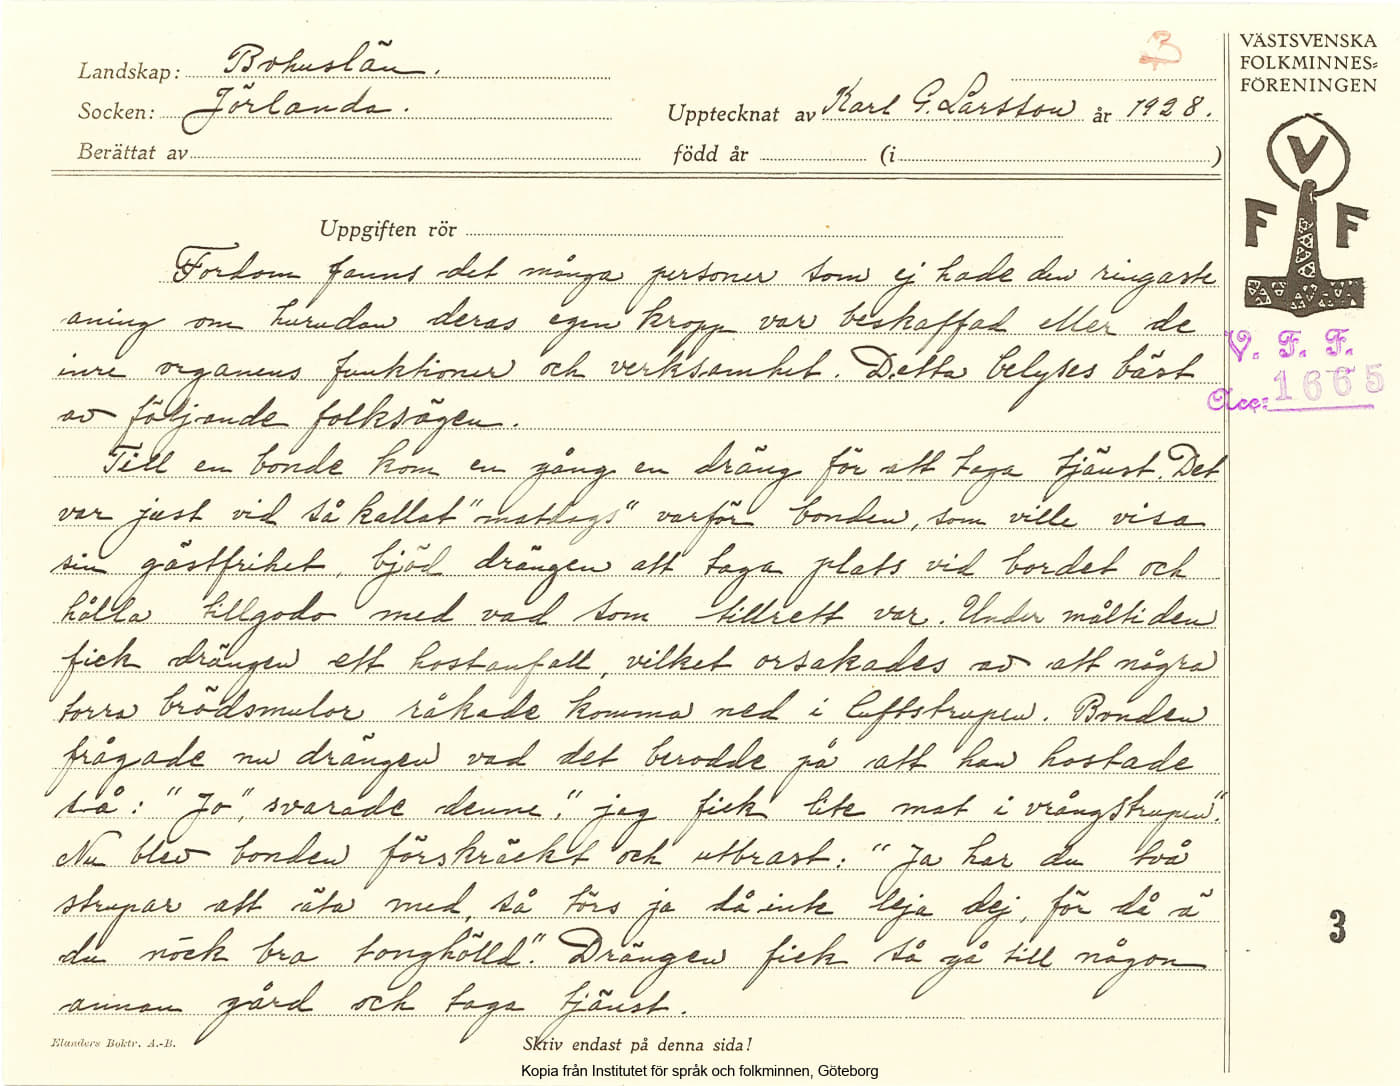 3
Landskap: Bohuslän.
Socken: Jörlanda.
Upptecknat av Karl G. Larsson år 1928.
Berättat av
född år (i )
VÄSTSVENSKA
FOLKMINNES=
FÖRENINGEN
V
F F
V. F. F.
Acc: 1665
Uppgiften rör
Fordom fanns det många personer som ej hade den ringaste
aning om hurudan deras egen kropp var beskaffad eller de
inre organens funktioner och verksamhet. Detta belyses bäst
av följande folksägen.
Till en bonde kom en gång en dräng för att taga tjänst. Det
var just vid så kallat "matdags" varför bonden, som ville visa
sin gästfrihet, bjöd drängen att taga plats vid bordet och
hålla tillgodo med vad som tillrett var. Under måltiden
fick drängen ett hostanfall, vilket orsakades av att några
torra brödsmulor råkade komma ned i luftstrupen. Bonden
frågade nu drängen vad det berodde på att han hostade
så: "Jo", svarade denne, "jag fick lite mat i vrångstrupen".
Nu blev bonden förskräckt och utbrast: "Ja har du två
strupar att äta med, så törs ja då inte leja dej, för då ä
du nöck bra tonghölld". Drängen fick så gå till någon
annan gård och taga tjänst.
3
Elanders Boktr. A.-B.
Skriv endast på denna sida!
Kopia från Institutet för språk och folkminnen, Göteborg